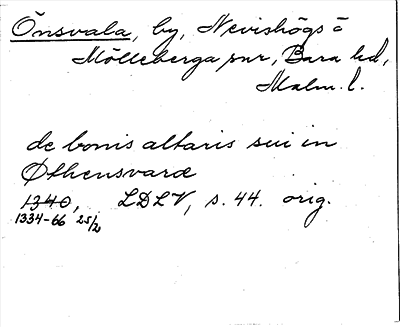 Önsvala, by, Nevishögs o
Mölleberga snr, Bara hd,
Malm. l.
de bonis altaris sui in
Øthensvare
1340, LDLV, s. 44. orig.
1334-66 25/2